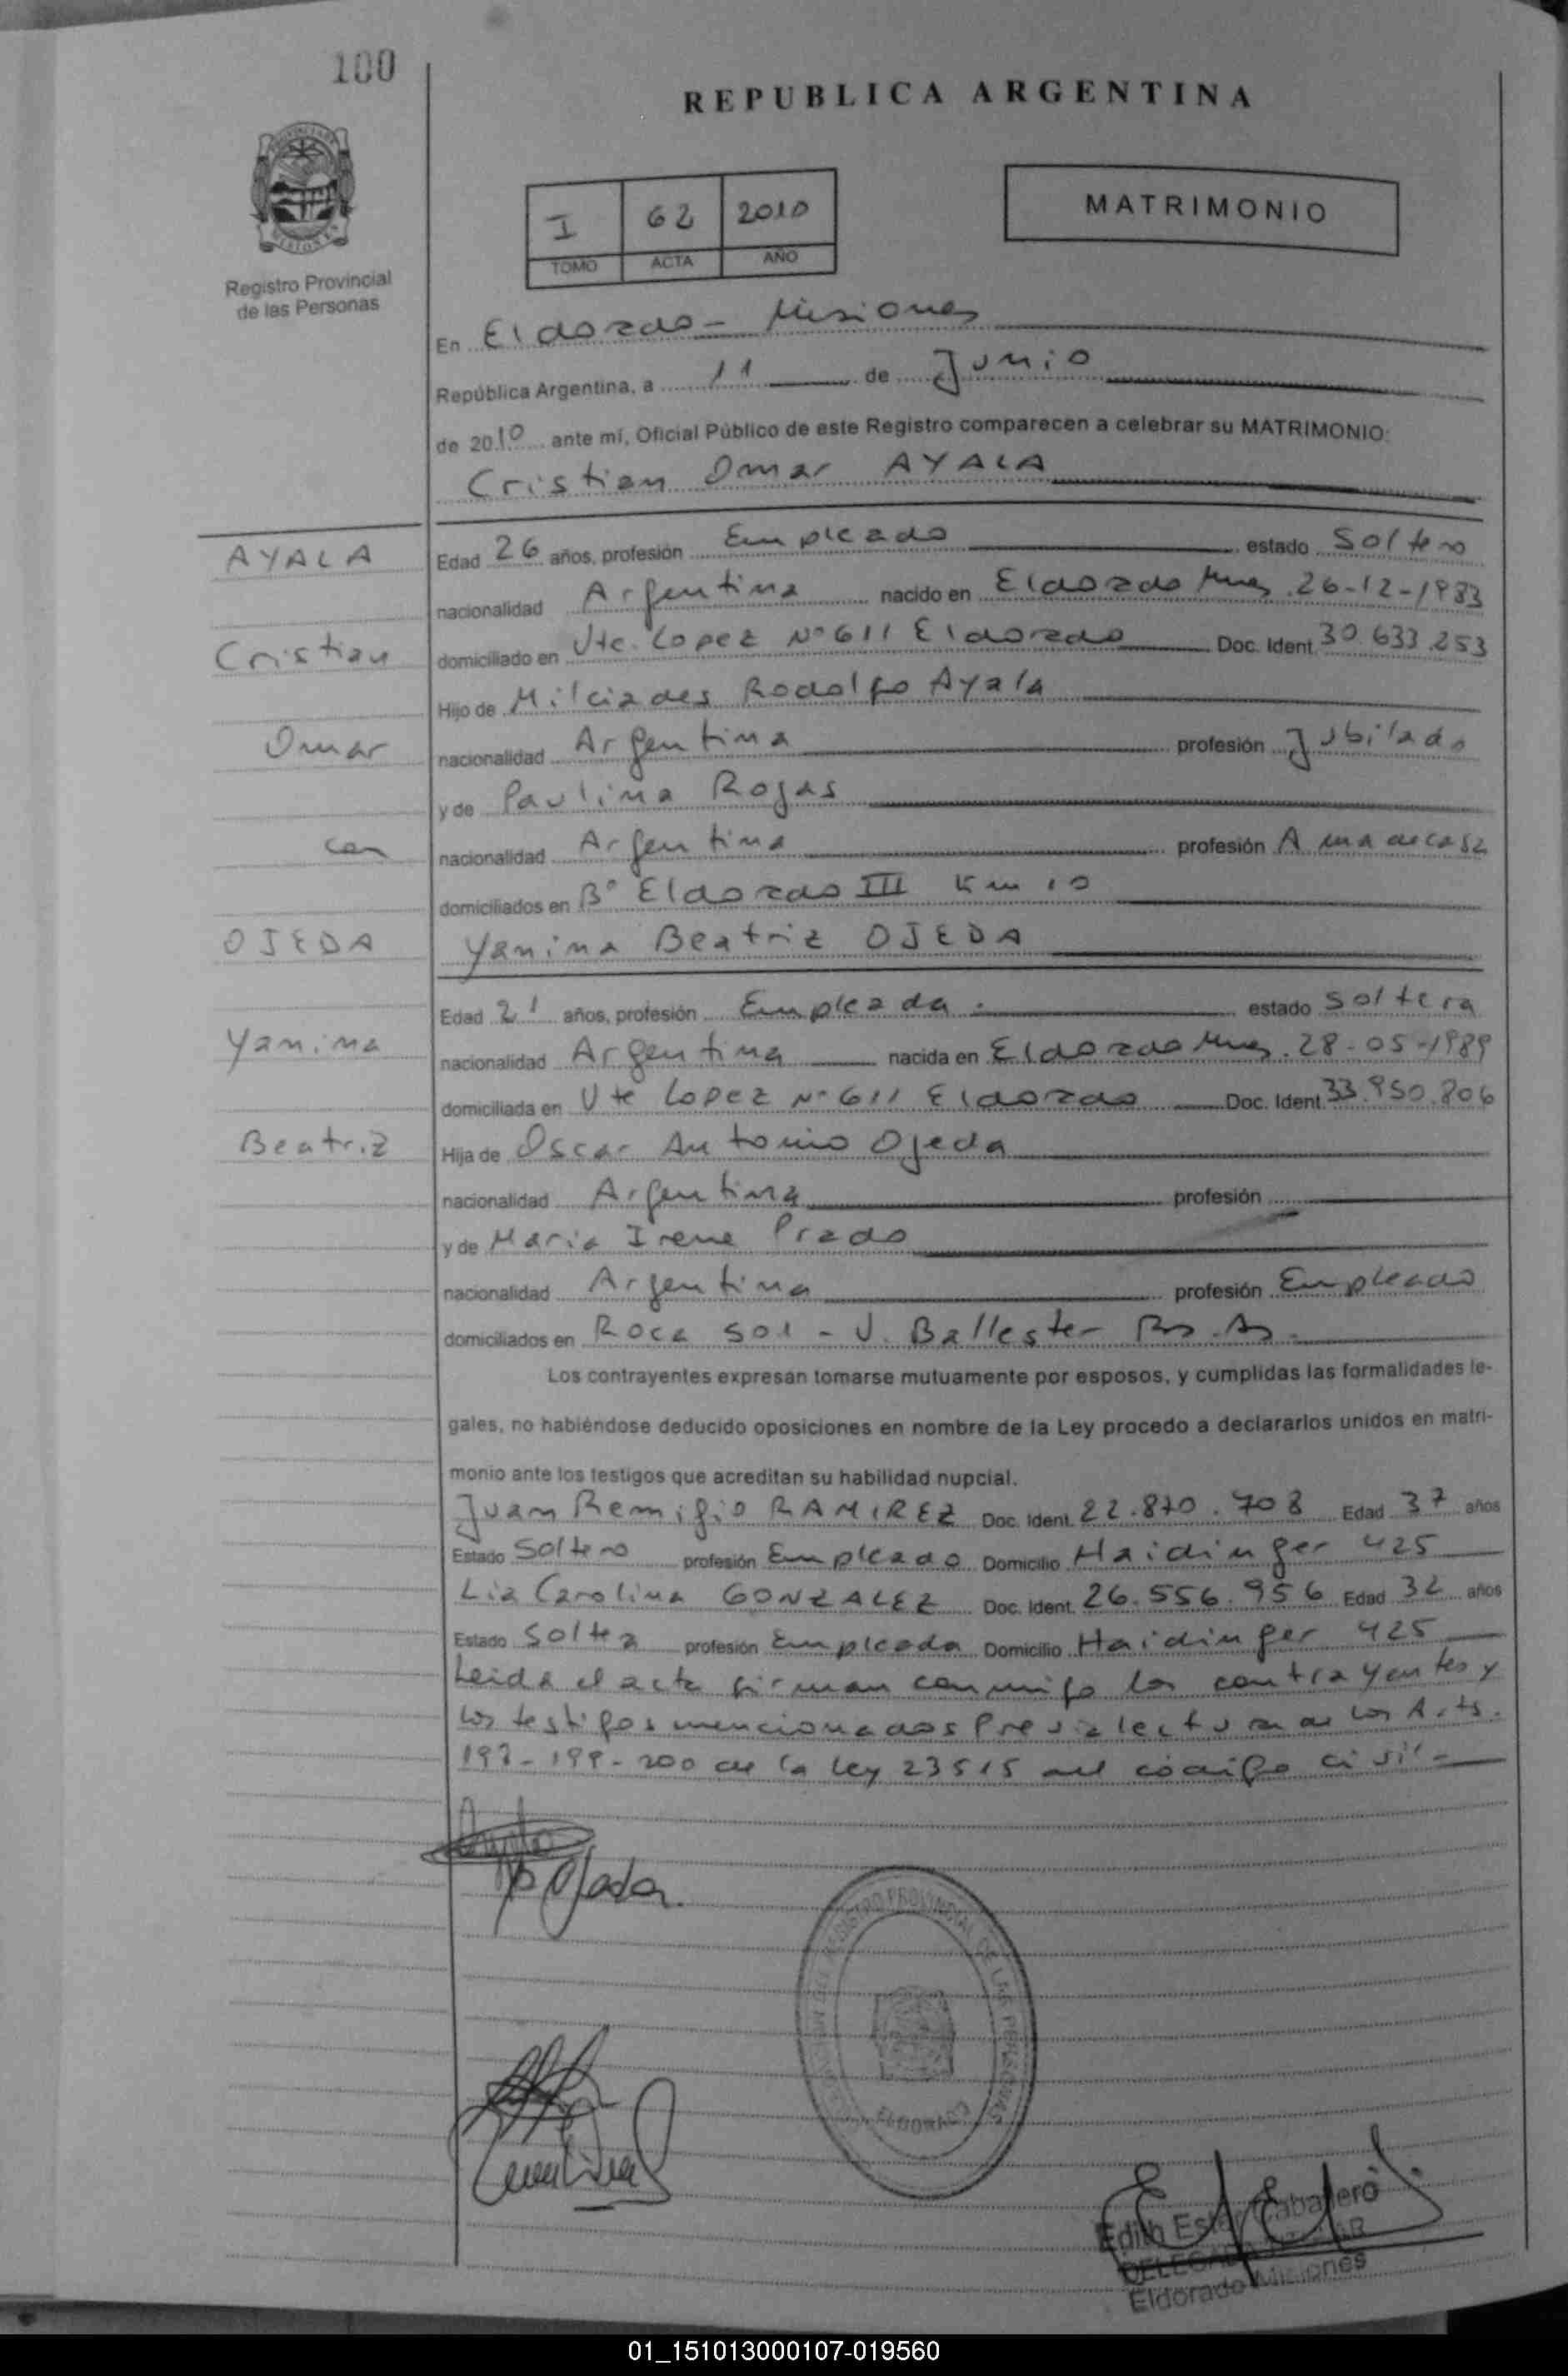 100
REPUBLICA ARGENTINA
MATRIMONIO
I 62 2010
TOMO ACTA AÑO
Registro Provincial
de las Personas
En Eldorado - Misiones
República Argentina, a 11 de Junio
de 2010 ante mí, Oficial Público de este Registro comparecen a celebrar su MATRIMONIO:
Cristian Omar AYALA
AYALA
Edad 26 años, profesión Empleado estado Soltero
nacionalidad Argentina nacido en Eldorado Mnes. 26-12-1983
Cristian
domiciliado en Vte. Lopez Nº 611 Eldorado Doc. Ident. 30.633.253
Hijo de Milciades Rodolfo Ayala
Omar
nacionalidad Argentina profesión Jubilado
y de Paulina Rojas
con
nacionalidad Argentina profesión Ama de casa
domiciliados en Bº Eldorado III Km 10
OJEDA
Yanina Beatriz OJEDA
Edad 21 años, profesión Empleada. estado Soltera
Yanina
nacionalidad Argentina nacida en Eldorado Mnes. 28-05-1989
domiciliada en Vte Lopez Nº 611 Eldorado Doc. Ident. 33.950.806
Beatriz
Hija de Oscar Antonio Ojeda
nacionalidad Argentina profesión
y de Maria Irene Prado
nacionalidad Argentina profesión Empleado
domiciliados en Roca 501 - V. Ballester Bs. As.
Los contrayentes expresan tomarse mutuamente por esposos, y cumplidas las formalidades le-
gales, no habiéndose deducido oposiciones en nombre de la Ley procedo a declararlos unidos en matri-
monio ante los testigos que acreditan su habilidad nupcial.
Juan Remigio RAMIREZ Doc. Ident. 22.870.708 Edad 37 años
Estado Soltero profesión Empleado Domicilio Haidinger 425
Lia Carolina GONZALEZ Doc. Ident. 26.556.956 Edad 32 años
Estado Solta profesión Empleada Domicilio Haidinger 425
Leida el acta firman conmigo los contrayentes y
los testigos mencionados Previa lectura de los Arts.
198-199-200 de la Ley 23515 del código civil -
Ojeda
REGISTRO PROVINCIAL DE LAS PERSONAS
ELDORADO
Edith Ester Caballero
DELEGADA TITULAR
Eldorado Misiones
01_151013000107-019560